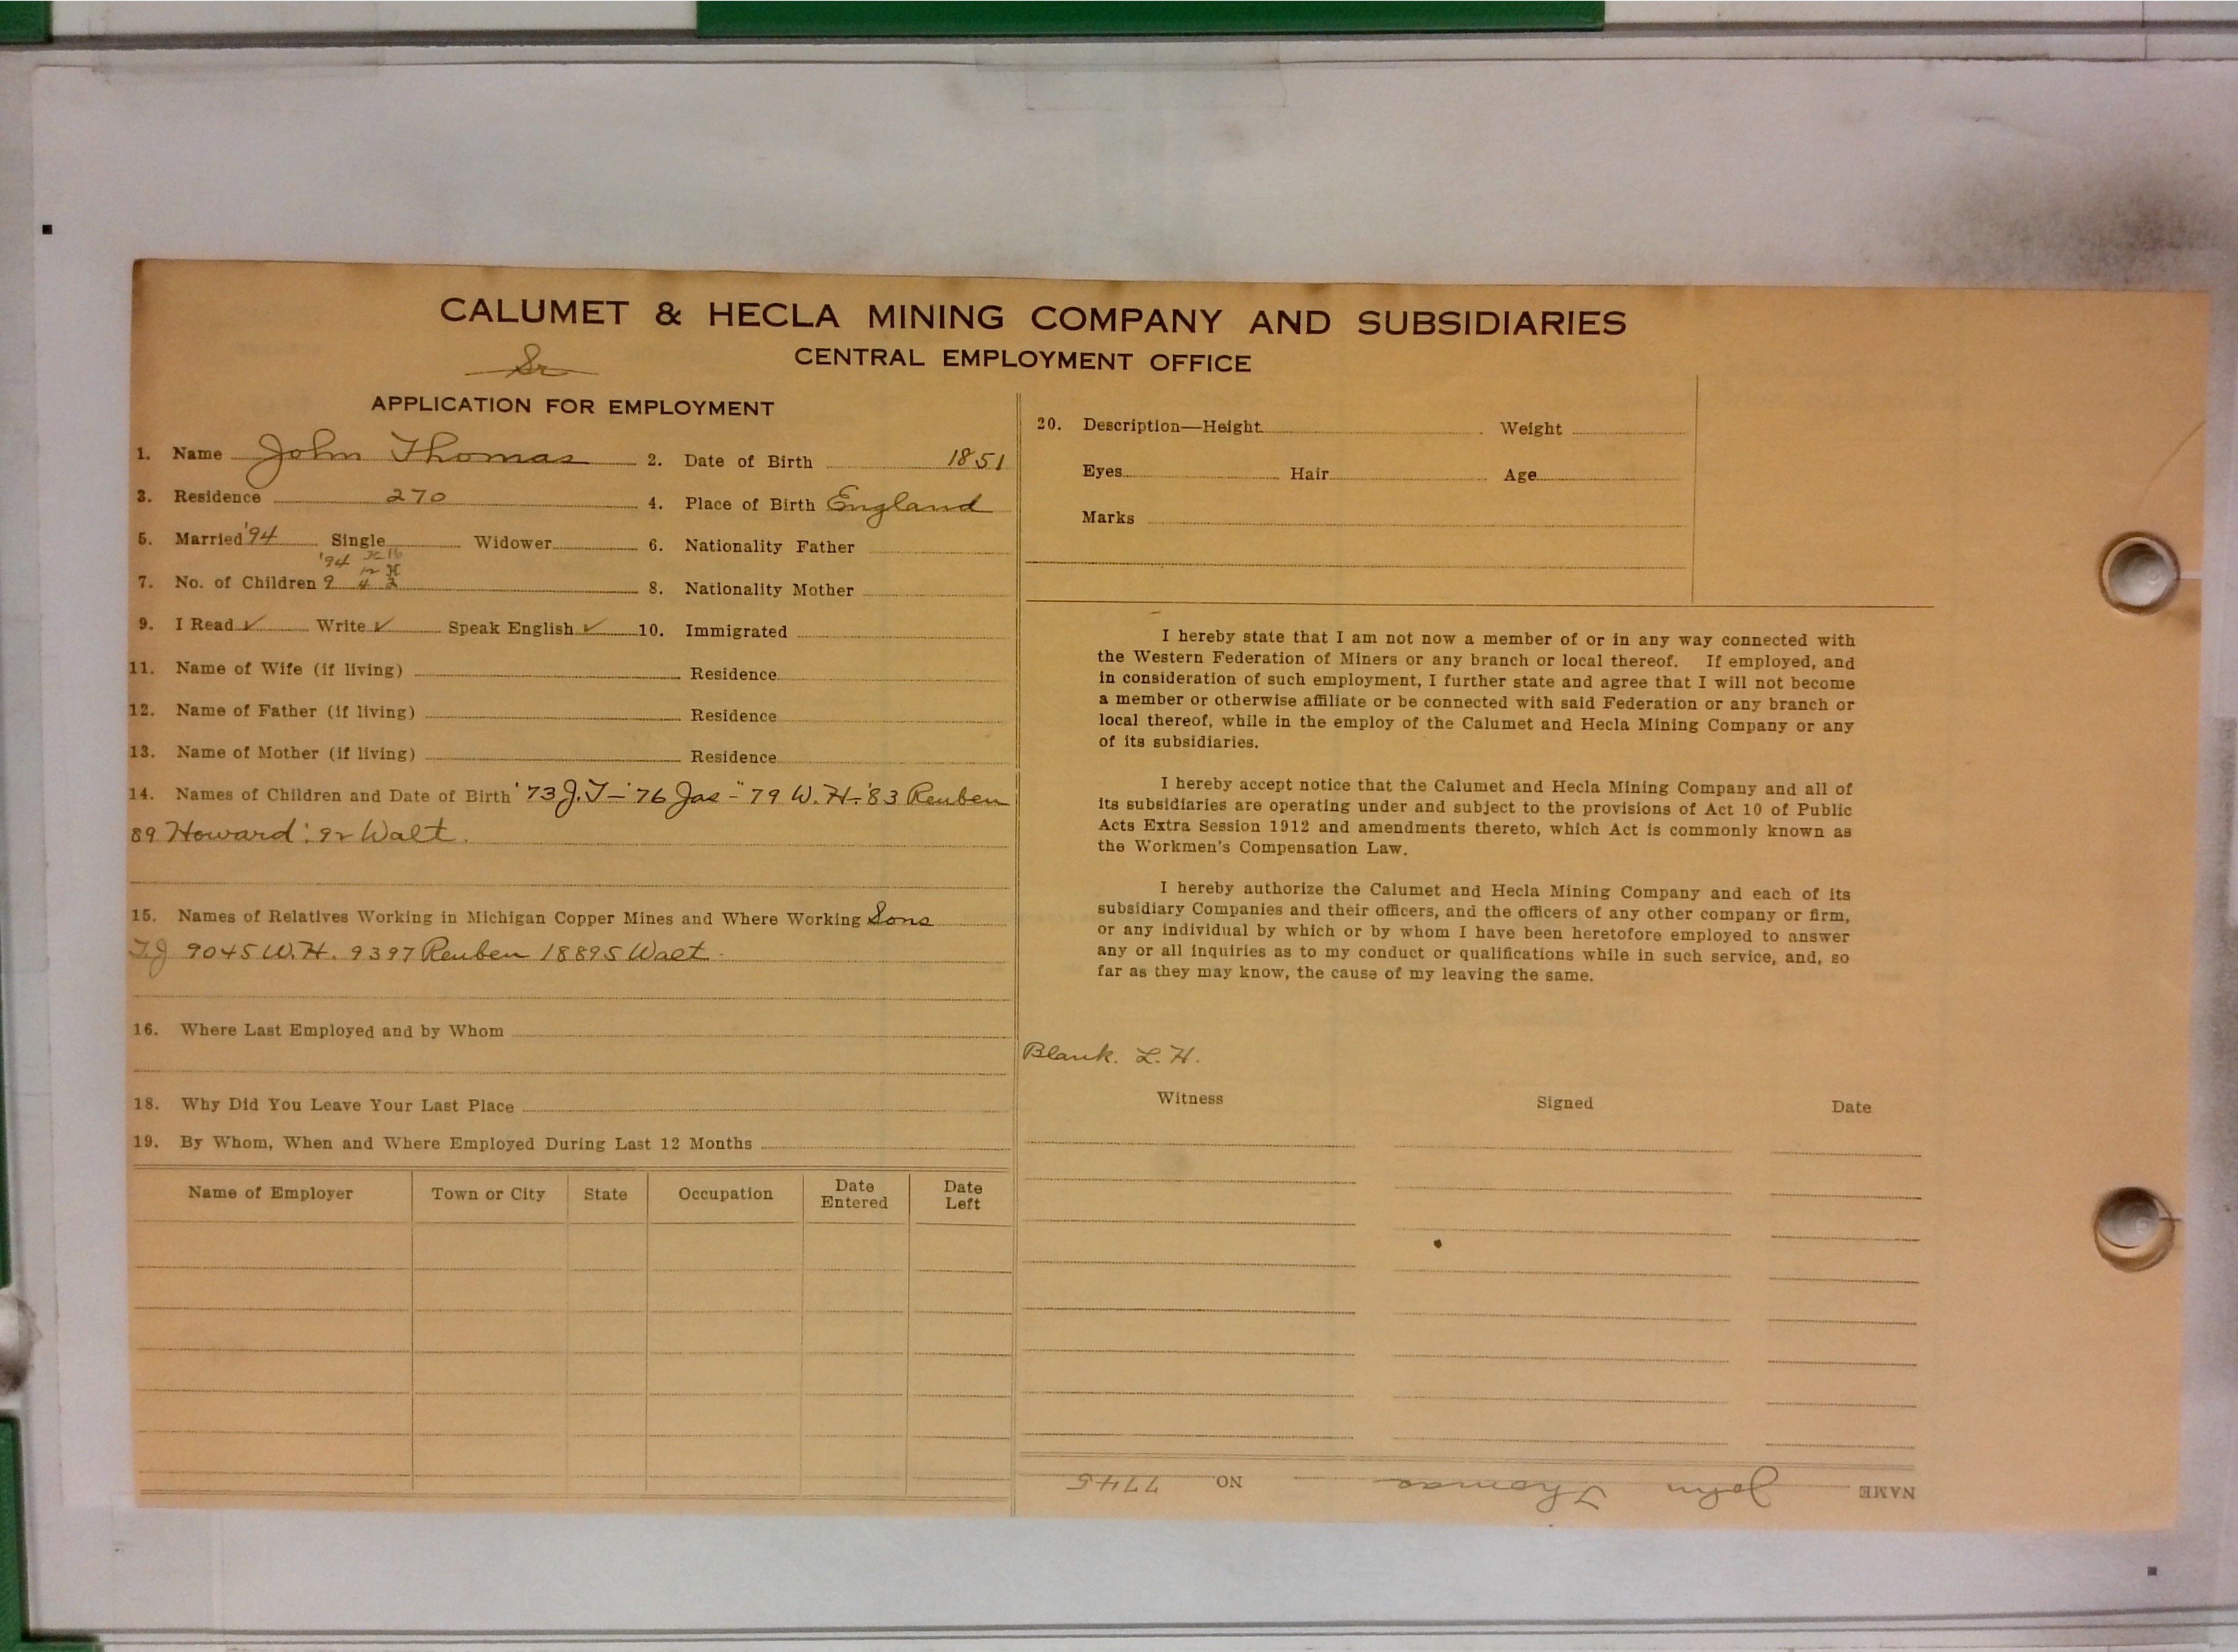 CALUMET & HECLA MINING COMPANY AND SUBSIDIARIES
CENTRAL EMPLOYMENT OFFICE
Sr
APPLICATION FOR EMPLOYMENT
1. Name John Thomas 2. Date of Birth 1851
3. Residence 270 4. Place of Birth England
5. Married '94 Single Widower 6. Nationality Father
'94
7. No. of Children 9 4 3 8. Nationality Mother
9. I Read ✓ Write ✓ Speak English ✓ 10. Immigrated
11. Name of Wife (if living) Residence
12. Name of Father (if living) Residence
13. Name of Mother (if living) Residence
14. Names of Children and Date of Birth '73 J.T - '76 Jas - '79 W.H. - '83 Reuben
89 Howard '92 Walt.
15. Names of Relatives Working in Michigan Copper Mines and Where Working Sons
T.J 9045 W.H. 9397 Reuben 18895 Walt.
16. Where Last Employed and by Whom
18. Why Did You Leave Your Last Place
19. By Whom, When and Where Employed During Last 12 Months
Name of Employer Town or City State Occupation Date Entered Date Left
20. Description—Height Weight
Eyes Hair Age
Marks
I hereby state that I am not now a member of or in any way connected with
the Western Federation of Miners or any branch or local thereof. If employed, and
in consideration of such employment, I further state and agree that I will not become
a member or otherwise affiliate or be connected with said Federation or any branch or
local thereof, while in the employ of the Calumet and Hecla Mining Company or any
of its subsidiaries.
I hereby accept notice that the Calumet and Hecla Mining Company and all of
its subsidiaries are operating under and subject to the provisions of Act 10 of Public
Acts Extra Session 1912 and amendments thereto, which Act is commonly known as
the Workmen's Compensation Law.
I hereby authorize the Calumet and Hecla Mining Company and each of its
subsidiary Companies and their officers, and the officers of any other company or firm,
or any individual by which or by whom I have been heretofore employed to answer
any or all inquiries as to my conduct or qualifications while in such service, and, so
far as they may know, the cause of my leaving the same.
Blank. L.H.
Witness Signed Date
NAME John Thomas NO 7745